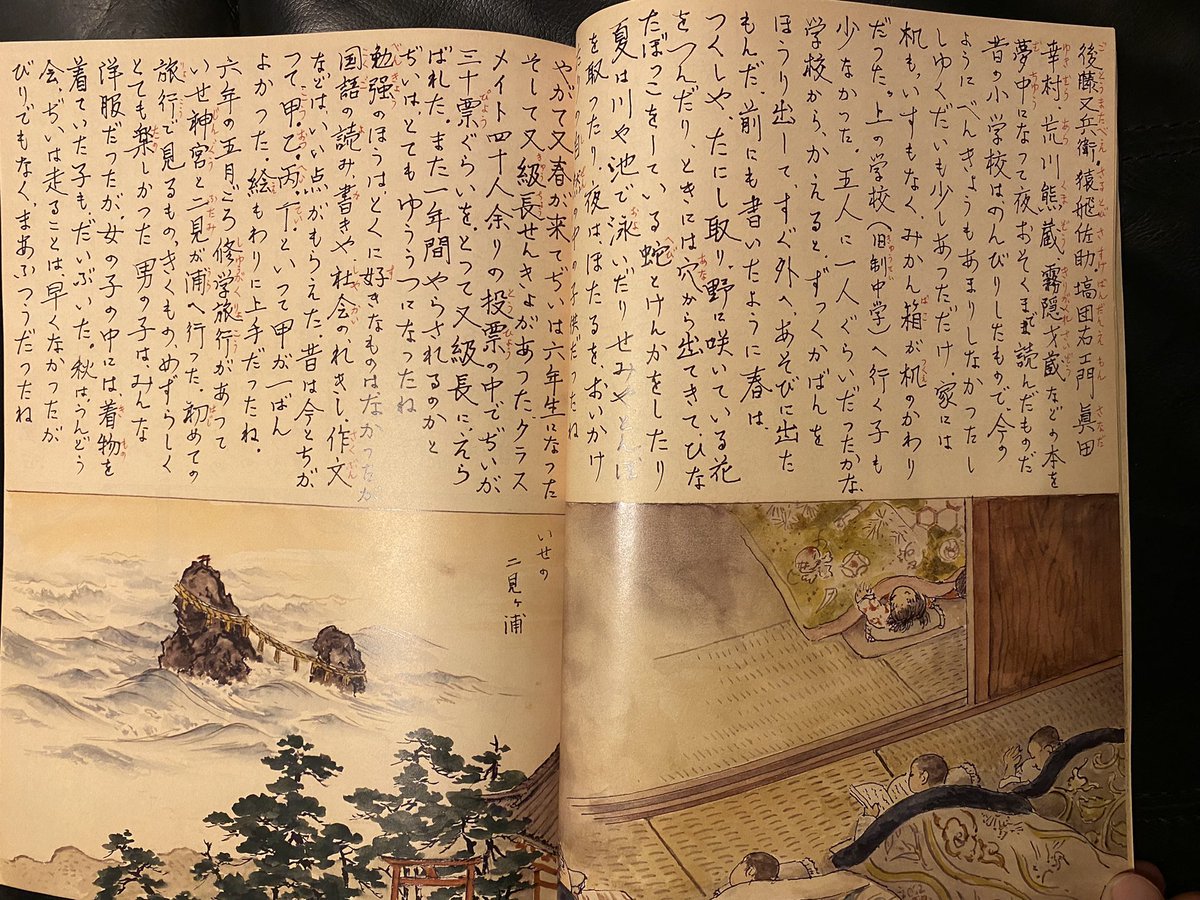 後藤又兵衛、猿飛佐助、塙団右エ門 眞田
幸村、荒川熊蔵、霧隠才蔵などの本を
夢中になって夜おそくまで読んだものだ
昔の小学校はのんびりしたもので、今の
ようにべんきょうもあまりしなかったし
しゆくだいも少しあっただけ、家には
机もいすもなく、みかん箱が机のかわり
だった。上の学校(旧制中学)へ行く子も
少なかった。五人に一人ぐらいだったかな、
学校から、かえると、ずっくかばんを
ほうり出して、すぐ外へ、あそびに出た
もんだ、前にも書いたように春は、
つくしや、たにし取り、野に咲いている花
をつんだり、ときには穴から出てきて、ひな
たぼっこをしている蛇とけんかをしたり
夏は川や池で泳いだりせみやとんぼ
を取ったり、夜は、ほたるを、おいかけ
やがて又春が来てぢいは六年生になった
そして又級長せんきよがあった、クラス
メイト四十人余りの投票の中で、ぢいが
三十票ぐらいを、とって又級長に、えら
ばれた。また一年間やらされるのかと
ぢいはとてもゆううつになったね
勉強のほうはとくに好きなものは、なかったが
国語の読み、書きや、社会の、れきし、作文
などは、いい点がもらえた。昔は今とちが
って、甲、乙、丙、丁、といって甲が一ばん
よかった。絵もわりに上手だったね。
六年の五月ごろ修学旅行があって
いせ神宮と二見が浦へ行った。初めての
旅行で見るもの、きくもの、めずらしく
とても楽しかった男の子は、みんな
洋服だったが、女の子の中には、着物を
着ていた子も、だいぶいた。秋はうんどう
会、ぢいは走ることは早くなかったが
びりでもなく、まあふつうだったね
いせの
二見ヶ浦